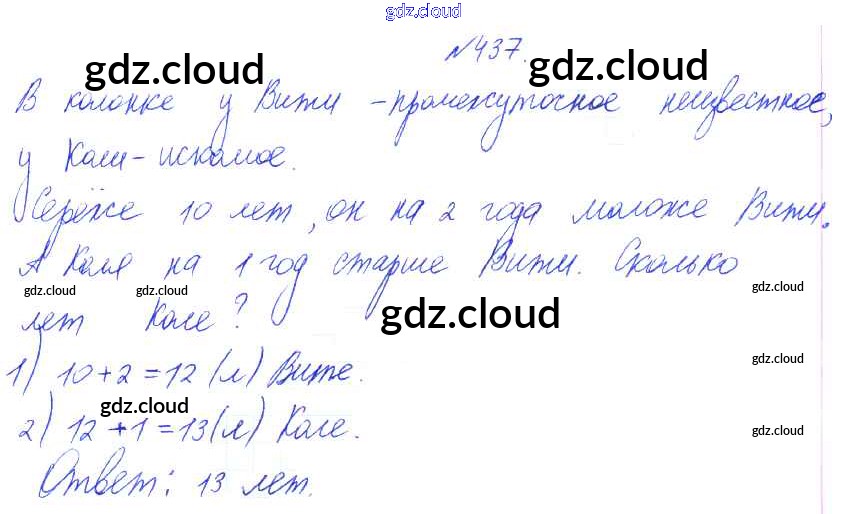 gdz.cloud
№437.
gdz.cloud gdz.cloud
В колонке у Вити - промежуточное неизвестное,
у Коли - искомое.
Серёже 10 лет, он на 2 года моложе Вити.
А Коля на 1 год старше Вити. Сколько
gdz.cloud gdz.cloud gdz.cloud
лет Коле? gdz.cloud
1) 10+2=12 (л) Вите. gdz.cloud
gdz.cloud
2) 12+1=13 (л) Коле. gdz.cloud
Ответ: 13 лет.